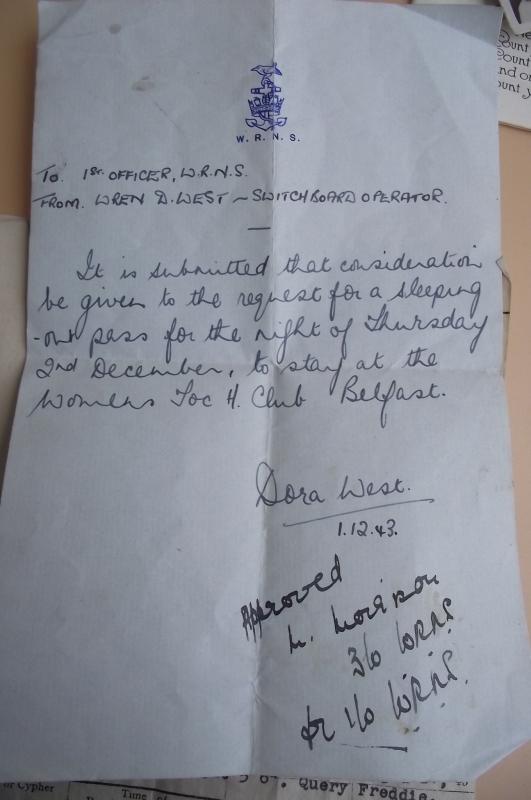 W. R. N. S.
To. 1st. OFFICER, W.R.N.S.
FROM. WREN D. WEST ~ SWITCHBOARD OPERATOR.
It is submitted that consideration
be given to the request for a sleeping
-out pass for the night of Thursday
2nd December, to stay at the
Womens Toc H. Club Belfast.
Dora West.
1.12.43.
Approved
M. Morison
3/O WRNS
for 1/O WRNS.
ount
ount
nd o
ount y
or Cypher
Time of
Query Freddie.